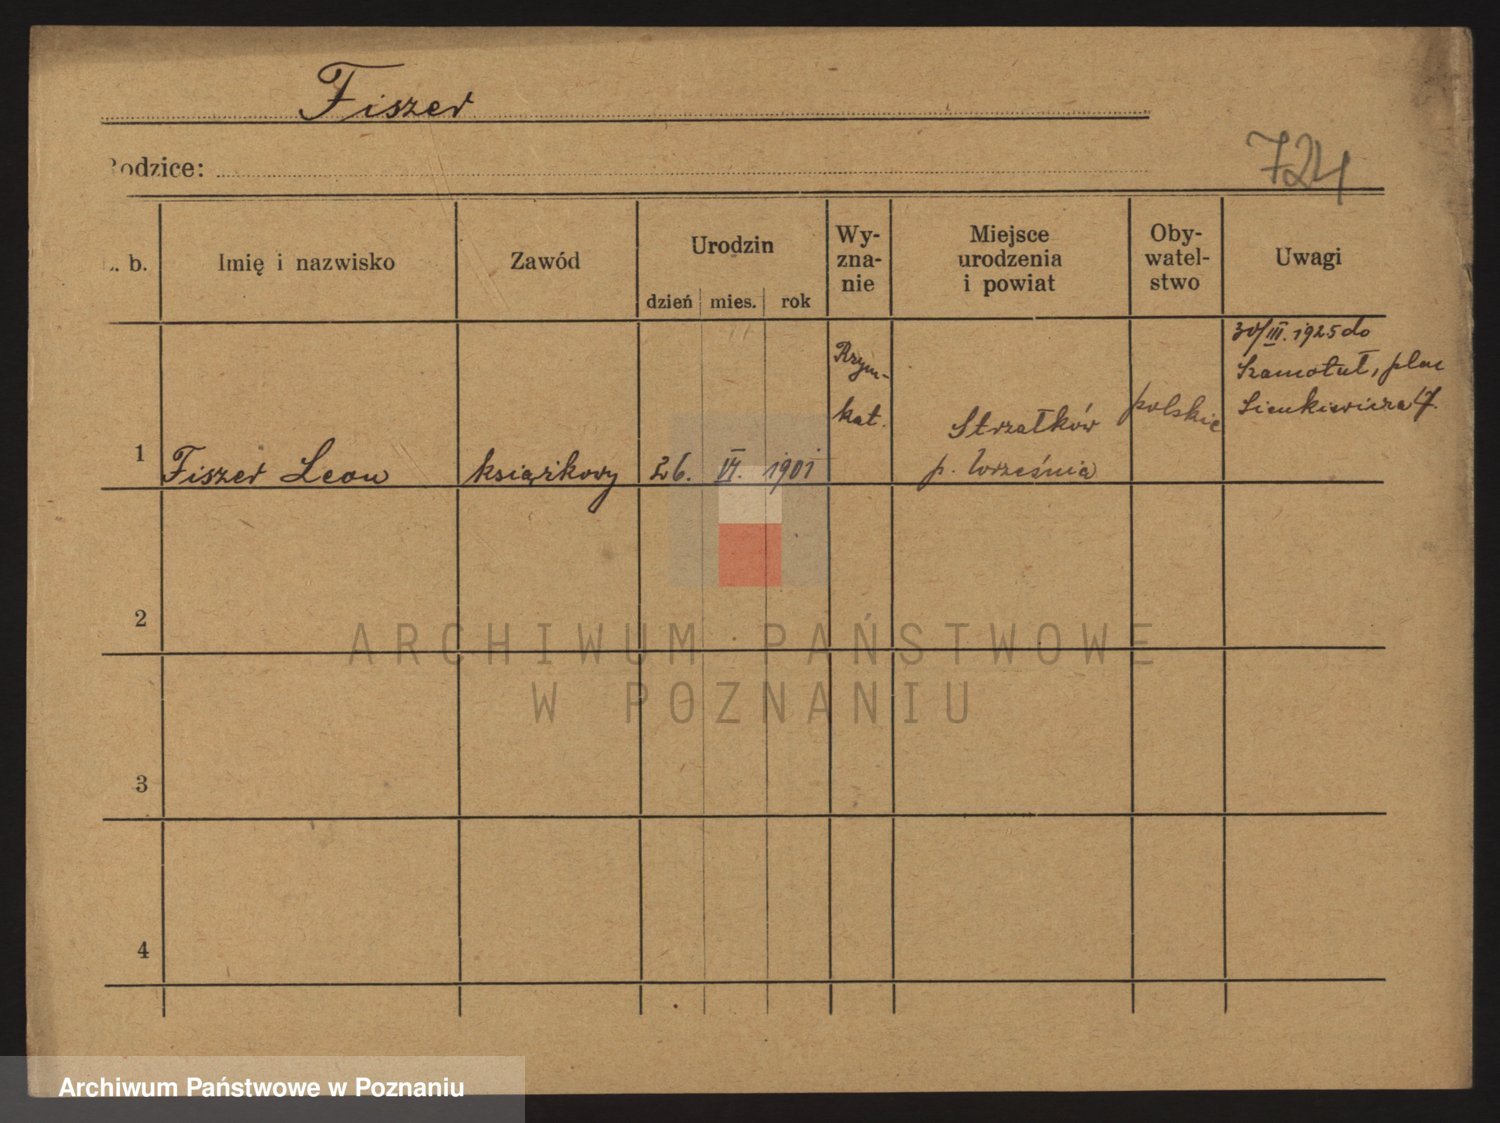 Fiszer
Rodzice:
724
L. b.
Imię i nazwisko
Zawód
Urodzin
dzień mies. rok
Wy-
zna-
nie
Miejsce
urodzenia
i powiat
Oby-
watel-
stwo
Uwagi
1
Fiszer Leon
książkowy
26. VI. 1901
Rzym-
kat.
Strzałków
p. Września
polskie
30/III. 1925 do
Szamotuł, plac
Sienkiewicza 17.
2
3
4
ARCHIWUM PAŃSTWOWE
W POZNANIU
Archiwum Państwowe w Poznaniu